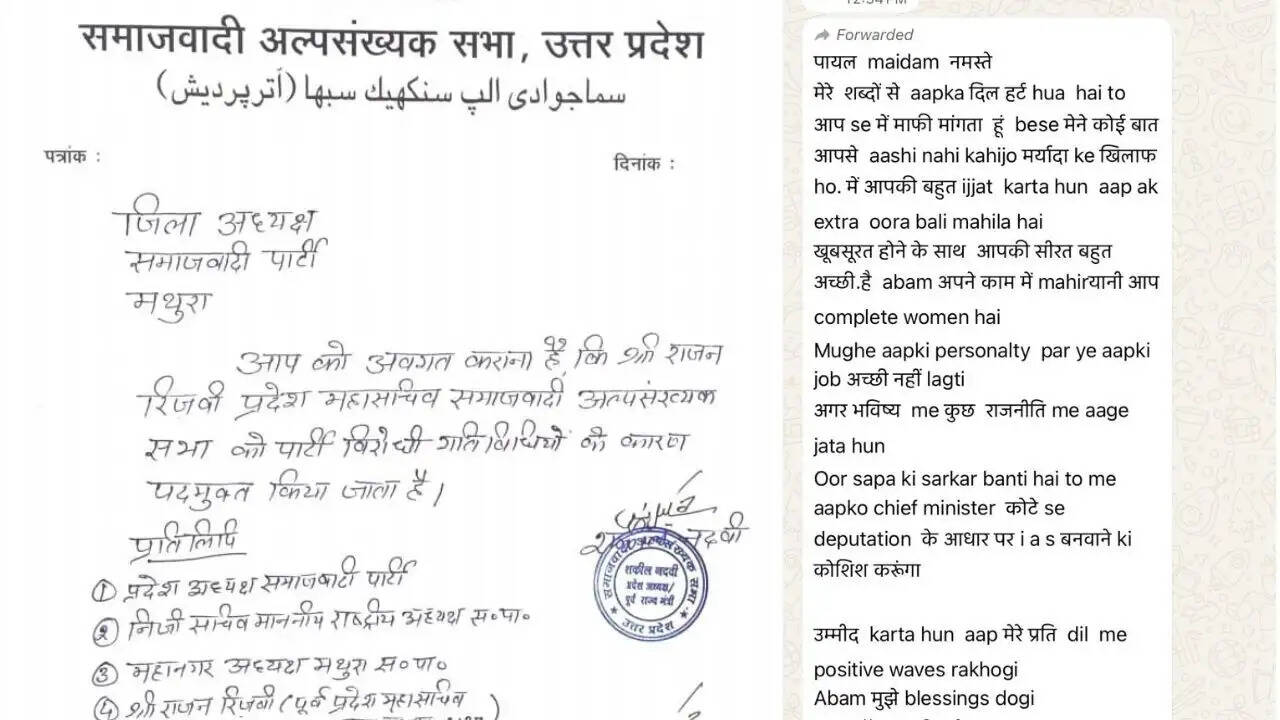 समाजवादी अल्पसंख्यक सभा, उत्तर प्रदेश
سماجوادی الپ سنکھیك سبھا (اُترپردیش)
पत्रांक :
दिनांक :
जिला अध्यक्ष
समाजवादी पार्टी
मथुरा
आप को अवगत कराना है, कि श्री राजन
रिजवी प्रदेश महासचिव समाजवादी अल्पसंख्यक
सभा को पार्टी विरोधी गतिविधियों के कारण
पदमुक्त किया जाता है।
नदवी
समाजवादी अल्पसंख्यक सभा
शकील नदवी
प्रदेश अध्यक्ष/
पूर्व राज्य मंत्री
उत्तर प्रदेश
प्रतिलिपि
① प्रदेश अध्यक्ष समाजवादी पार्टी
② निजी सचिव माननीय राष्ट्रीय अध्यक्ष स०पा०
③ महानगर अध्यक्ष मथुरा स० पा०
④ श्री राजन रिजवी (पूर्व प्रदेश महासचिव
12:34 PM
Forwarded
पायल maidam नमस्ते
मेरे शब्दों से aapka दिल हर्ट hua hai to
आप se में माफी मांगता हूं bese मेने कोई बात
आपसे aashi nahi kahijo मर्यादा ke खिलाफ
ho. में आपकी बहुत ijjat karta hun aap ak
extra oora bali mahila hai
खूबसूरत होने के साथ आपकी सीरत बहुत
अच्छी.है abam अपने काम में mahirयानी आप
complete women hai
Mughe aapki personalty par ye aapki
job अच्छी नहीं lagti
अगर भविष्य me कुछ राजनीति me aage
jata hun
Oor sapa ki sarkar banti hai to me
aapko chief minister कोटे se
deputation के आधार पर i a s बनवाने ki
कोशिश करूंगा
उम्मीद karta hun aap मेरे प्रति dil me
positive waves rakhogi
Abam मुझे blessings dogi